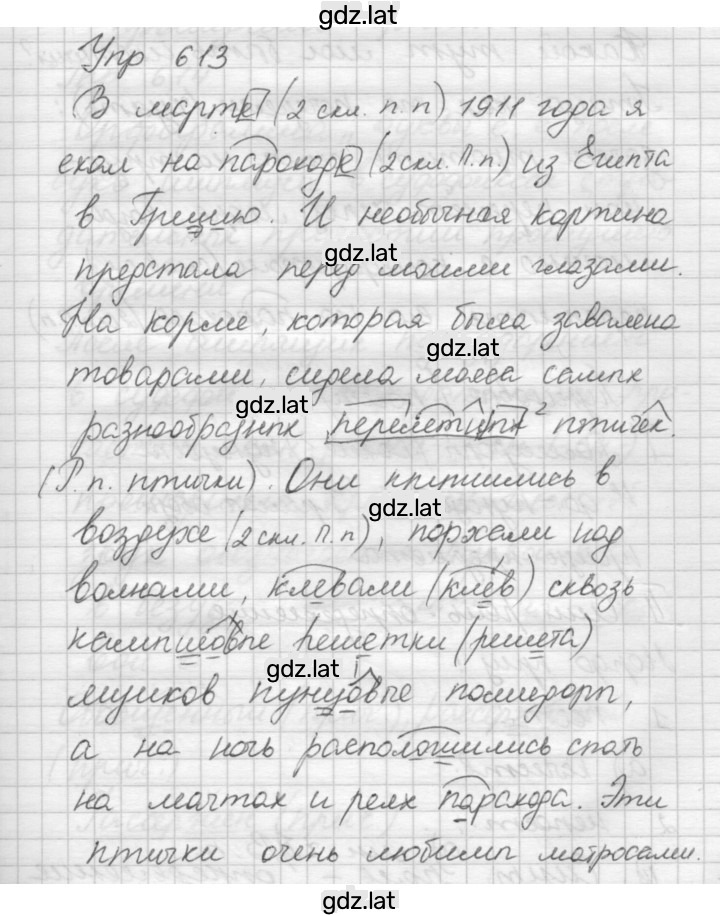 gdz.lat
Упр 613
В марте (2 скл. п. п) 1911 года я
ехал на пароходе (2 скл. П. п.) из Египта
в Грецию. И необычная картина
gdz.lat
предстала перед моими глазами.
На корме, которая была завалена
gdz.lat
товарами, сидела масса самых
gdz.lat
разнообразных перелетных 2 птичек.
(Р. п. птички). Они кружились в
gdz.lat
воздухе (2 скл. П. п), порхали над
волнами, клевали (клёв) сквозь
камышовые решетки (решета)
gdz.lat
ящиков пунцовые помидоры,
а на ночь расположились спать
на мачтах и реях парохода. Эти
птички очень любимы матросами.
gdz.lat